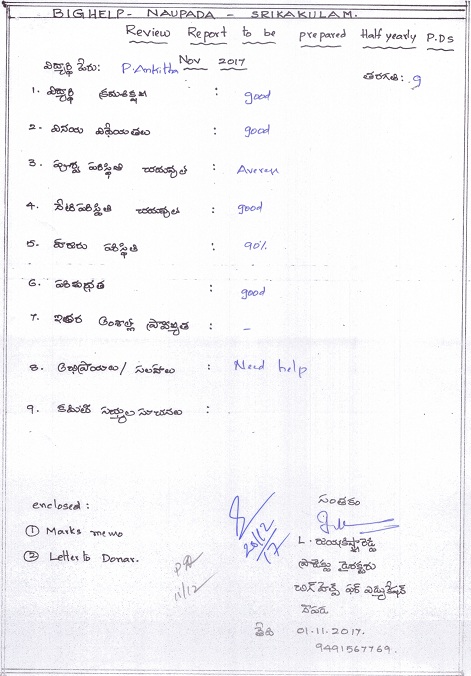 BIGHELP - NAUPADA - SRIKAKULAM.
Review Report to be prepared Half yearly P.Ds
Nov 2017
విద్యార్థి పేరు: P. Ankitha తరగతి: 9
1. విద్యార్థి క్రమశిక్షణ : good
2. వినయ విధేయతలు : good
3. పూర్వ పరిస్థితి చదువుల : Averag
4. నేటి పరిస్థితి చదువుల : good
5. హాజరు పరిస్థితి : 90%
6. పరిశుభ్రత : good
7. ఇతర అంశాల్లో ప్రావీణ్యత : -
8. అభిప్రాయలు/ సలహాలు : Need help
9. కమిటీ సభ్యుల సూచనలు :
enclosed :
సంతకం
① Marks memo
② Letter to Donar.
20/12/17
11/12
L.
ప్రాజెక్టు డైరక్టరు
బిగ్ హెల్ప్ ఫర్ ఎడ్యుకేషన్
నౌపడ
తేది 01.11.2017.
9491567769.